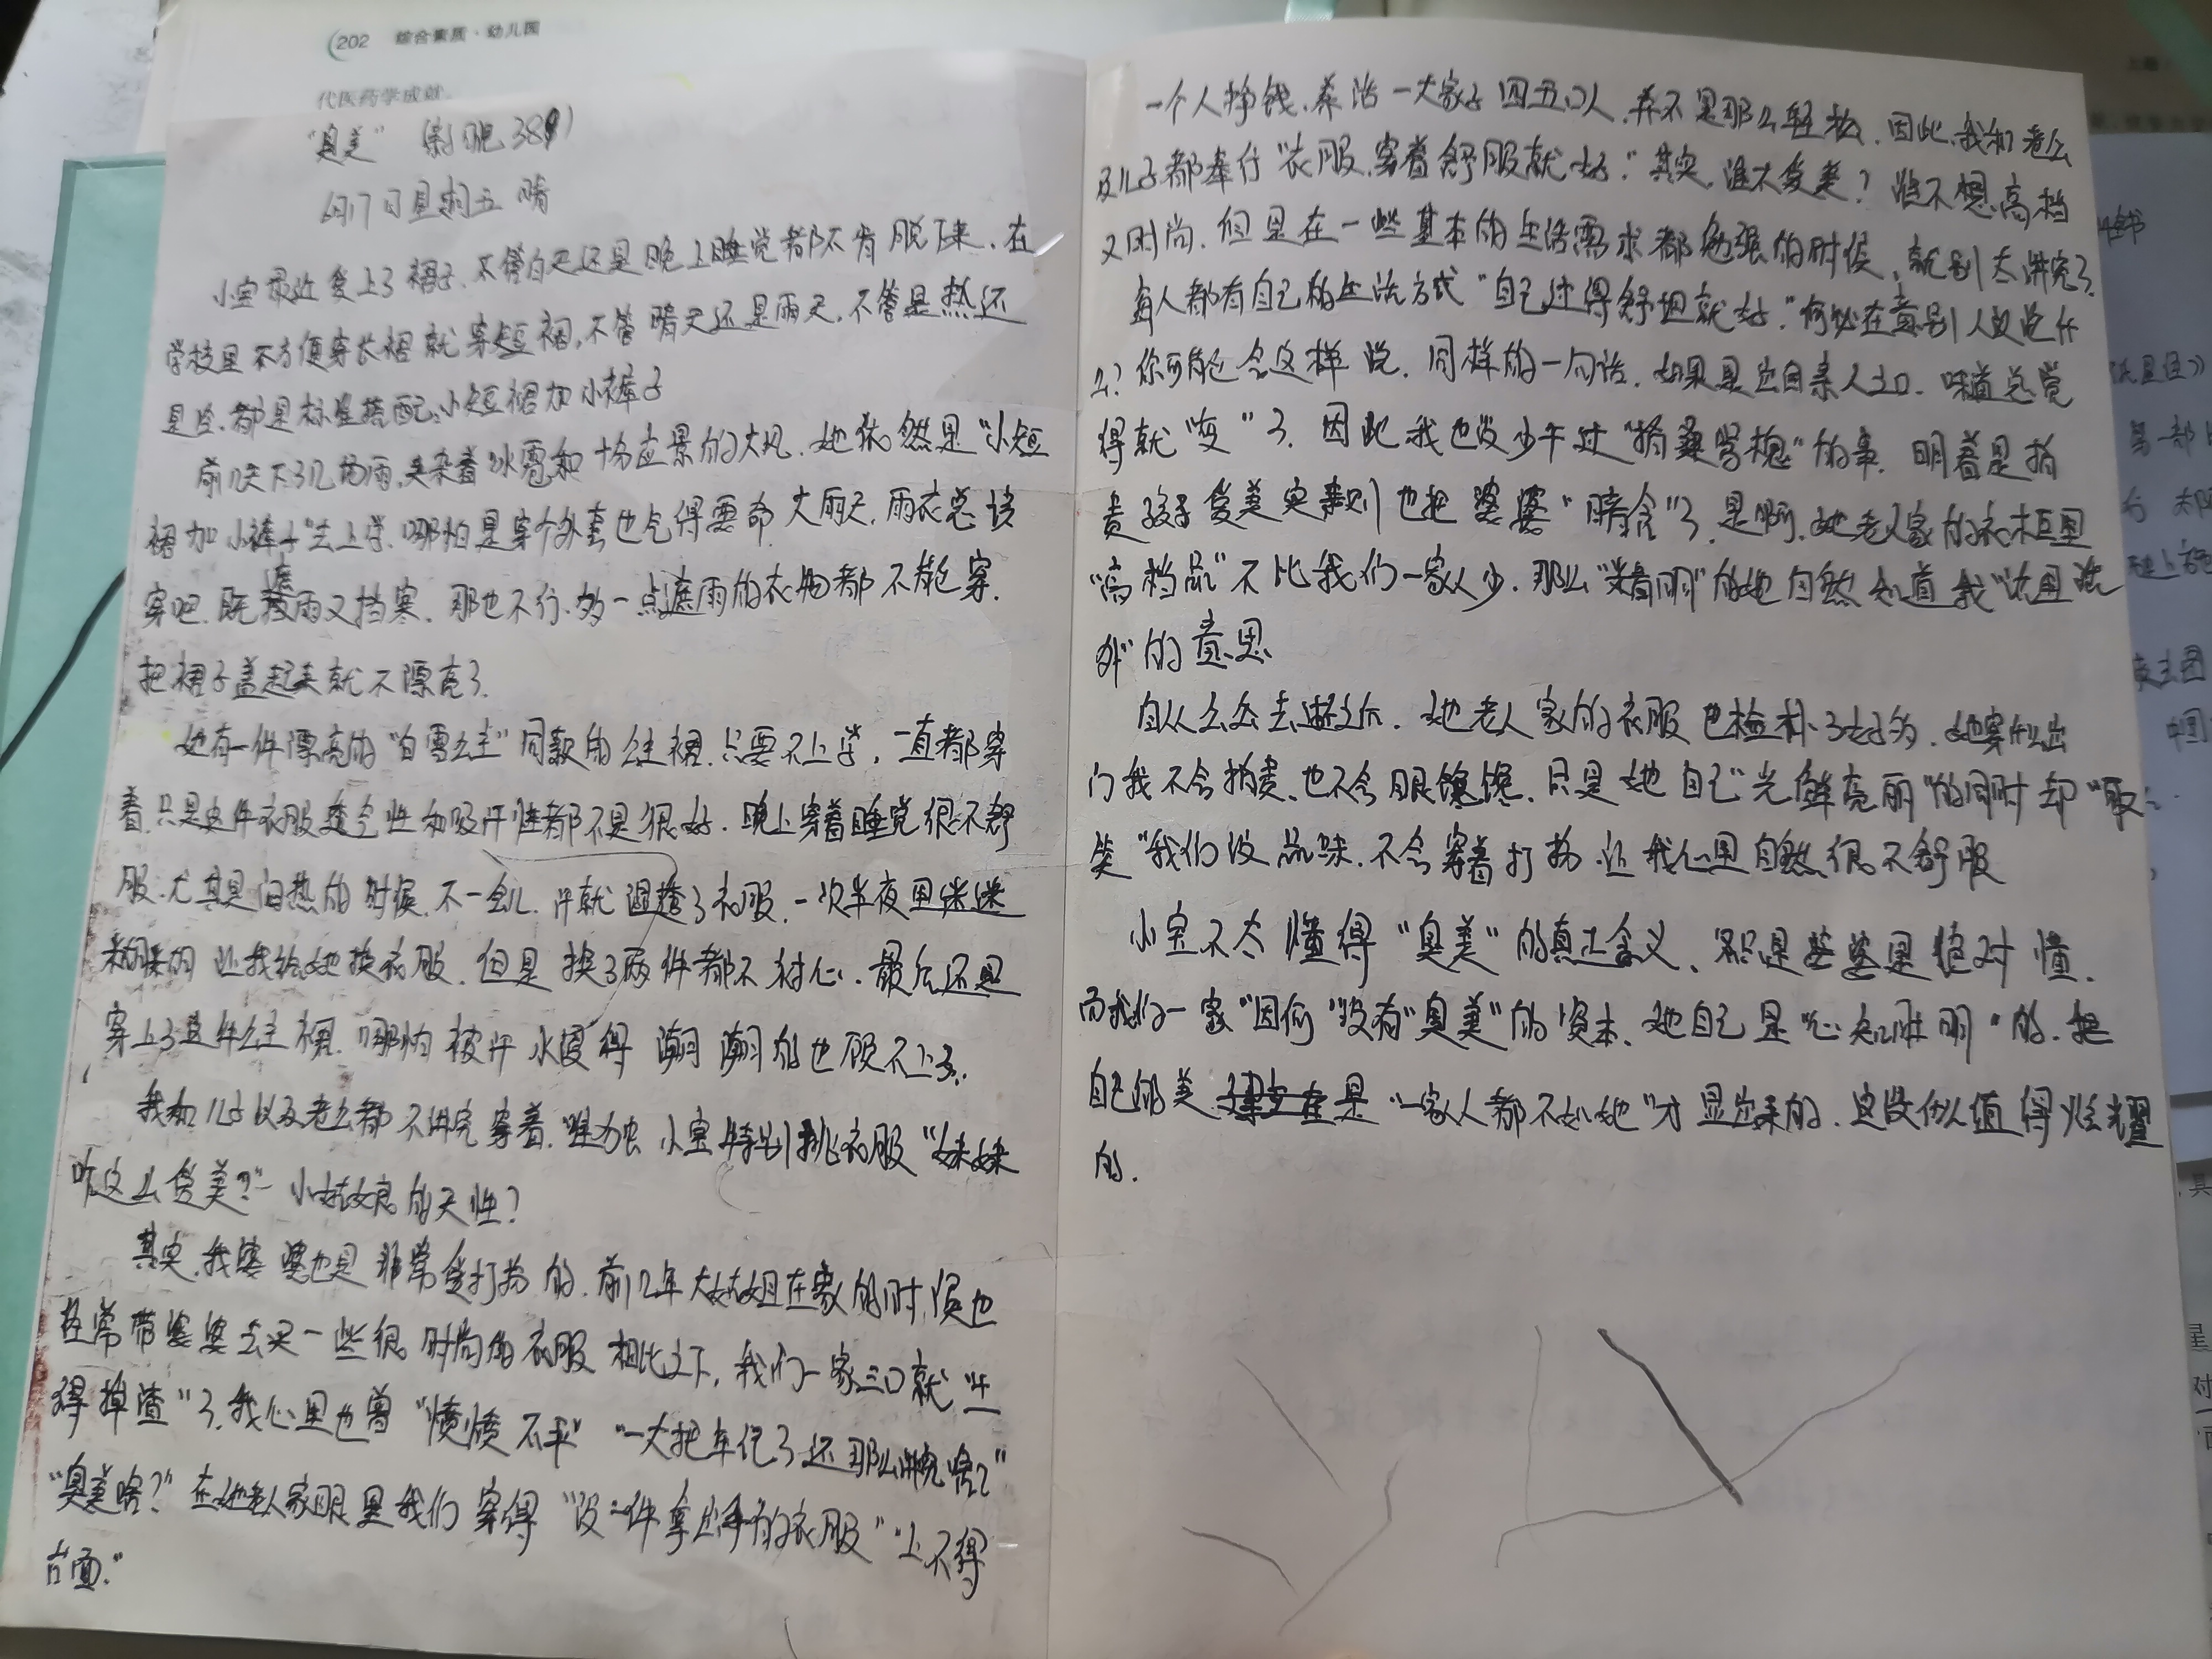 202 综合素质·幼儿园
代医药学成就。
“臭美”
6月17日星期五 晴
小宝最近爱上了裙子、不管白天还是晚上睡觉都不肯脱下来、在
学校里不方便穿长裙就穿短裙,不管晴天还是雨天,不管是热还
是冷,都是标准搭配:小短裙加小裤子
前几天下了几场雨,夹杂着冰雹和十分应景的大风、她依然是“小短
裙加小裤子”去上学、哪怕是穿个外套也气得要命,大雨天,雨衣总该
穿吧,既遮雨又挡寒、那也不行,多一点遮雨的衣物都不能穿、
把裙子盖起来就不漂亮了.
她有一件漂亮的“白雪公主”同款的公主裙,只要不上学,一直都穿
着,只是这件衣服透气性和吸汗性都不是很好、晚上穿着睡觉很不舒
服、尤其是闷热的时候、不一会儿、汗就湿透了衣服、一次半夜里迷迷
糊糊的让我给她换衣服、但是换了两件都不对心、最后还是
穿上了这件公主裙、哪怕被汗水浸得潮潮的也顾不上了.
我和儿子以及老公都不讲究穿着,唯独小宝特别挑衣服“妹妹
咋这么爱美?”小姑娘的天性?
其实,我婆婆也是非常爱打扮的、前几年大姑姐在家的时候也
经常带婆婆去买一些很时尚的衣服相比之下,我们一家三口就“土
得掉渣”了,我心里也曾“愤愤不平”“一大把年纪了还那么讲究啥?”
“臭美啥?”在她老人家眼里我们穿得“没一件拿出手的衣服”“上不得
台面.”
一个人挣钱、养活一大家子四五口人、并不是那么轻松、因此,我和老公
及儿子都奉行“衣服,穿着舒服就好.”其实,谁不爱美?谁不想高档
又时尚、但是在一些基本的生活需求都勉强的时候、就别太讲究了.
每人都有自己的生活方式“自己过得舒坦就好.”何必在意别人议论什
么?你可能会这样说、同样的一句话、如果是出自亲人之口、味道总觉
得就“变”了、因此我也没少干过“指桑骂槐”的事、明着是指
责孩子爱美实则也把婆婆“暗含”了、是啊,她老人家的衣柜里
“高档品”不比我们一家人少、那么的她自然知道我“话里话
外”的意思
自从公公去逝之后、她老人家的衣服也检朴了好多、她穿什么出
门我不会指责、也不会眼馋、只是她自己“光鲜亮丽”的同时却“取
笑”我们没品味、不会穿着打扮、让我心里自然很不舒服
小宝不太懂得“臭美”的真正含义、婆婆是绝对懂、
而我们一家“因何”没有“臭美”的资本、她自己是“心知肚明”的、把
自己的美是“一家人都不如她”才显出来的、这没什么值得炫耀
的.